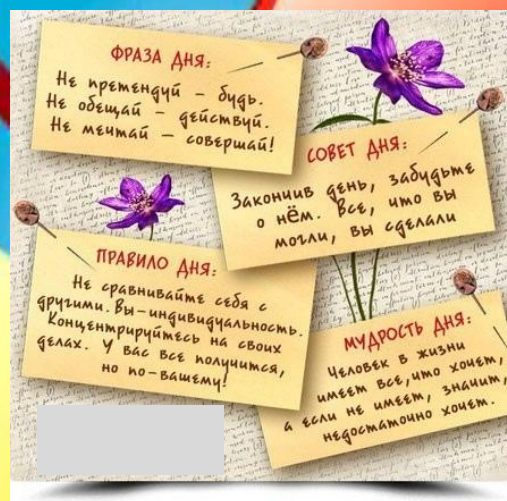 ФРАЗА ДНЯ:
Не претендуй – будь.
Не обещай – действуй.
Не мечтай – совершай!
СОВЕТ ДНЯ:
Закончив день, забудьте
о нём. Все, что вы
могли, вы сделали
ПРАВИЛО ДНЯ:
Не сравнивайте себя с
другими. Вы – индивидуальность.
Концентрируйтесь на своих
делах. У вас все получится,
но по-вашему!
МУДРОСТЬ ДНЯ:
Человек в жизни
имеет все, что хочет,
а если не имеет, значит,
недостаточно хочет.